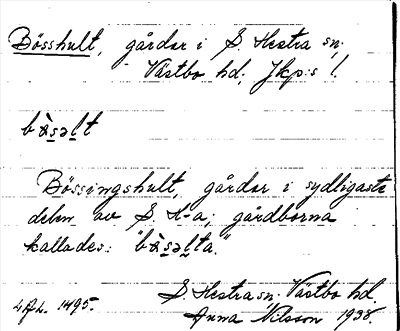 Bösshult, gårdar i S. Hestra sn;
Västbo hd; Jkp:s l.
bὰsəlt
Bössingshult, gårdar i sydligaste
delen av S. H-a; gårdborna
kallades: "bὰsəlta."
S. Hestra sn. Västbo hd.
1495.
Anna Nilsson 1935